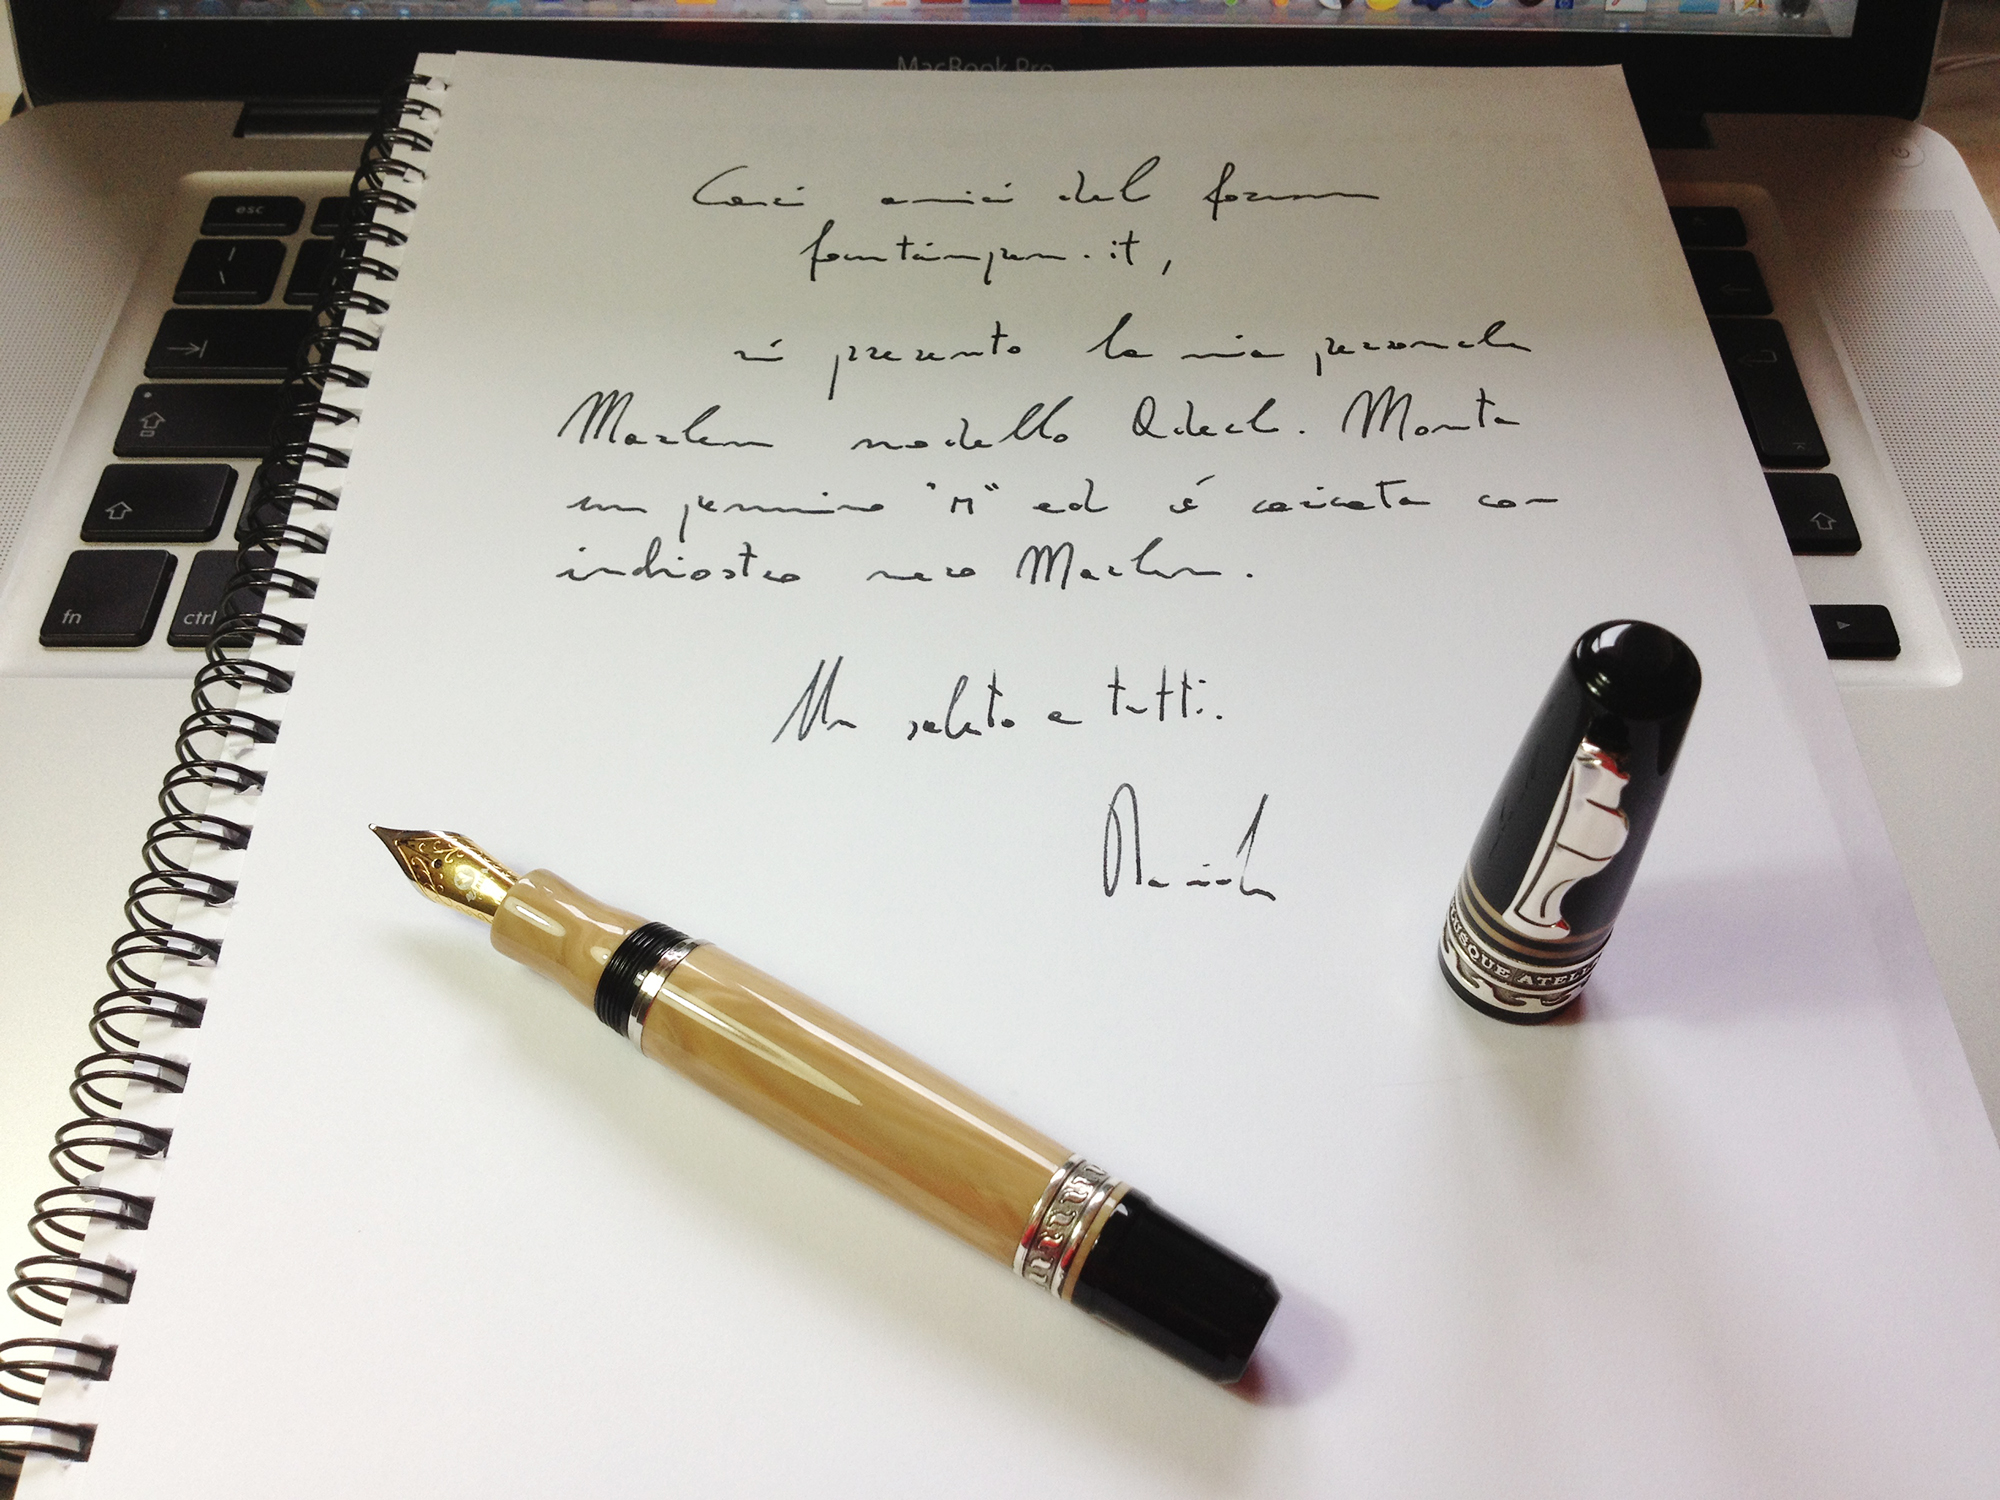 MacBook Pro
esc
fn
ctrl
Cari amici del forum
fountainpen.it,
vi presento la mia personale
Marlen modello Odech. Monta
un pennino "M" ed è caricata con
inchiostro nero Marlen.
Un saluto a tutti.
USQUE ATELL